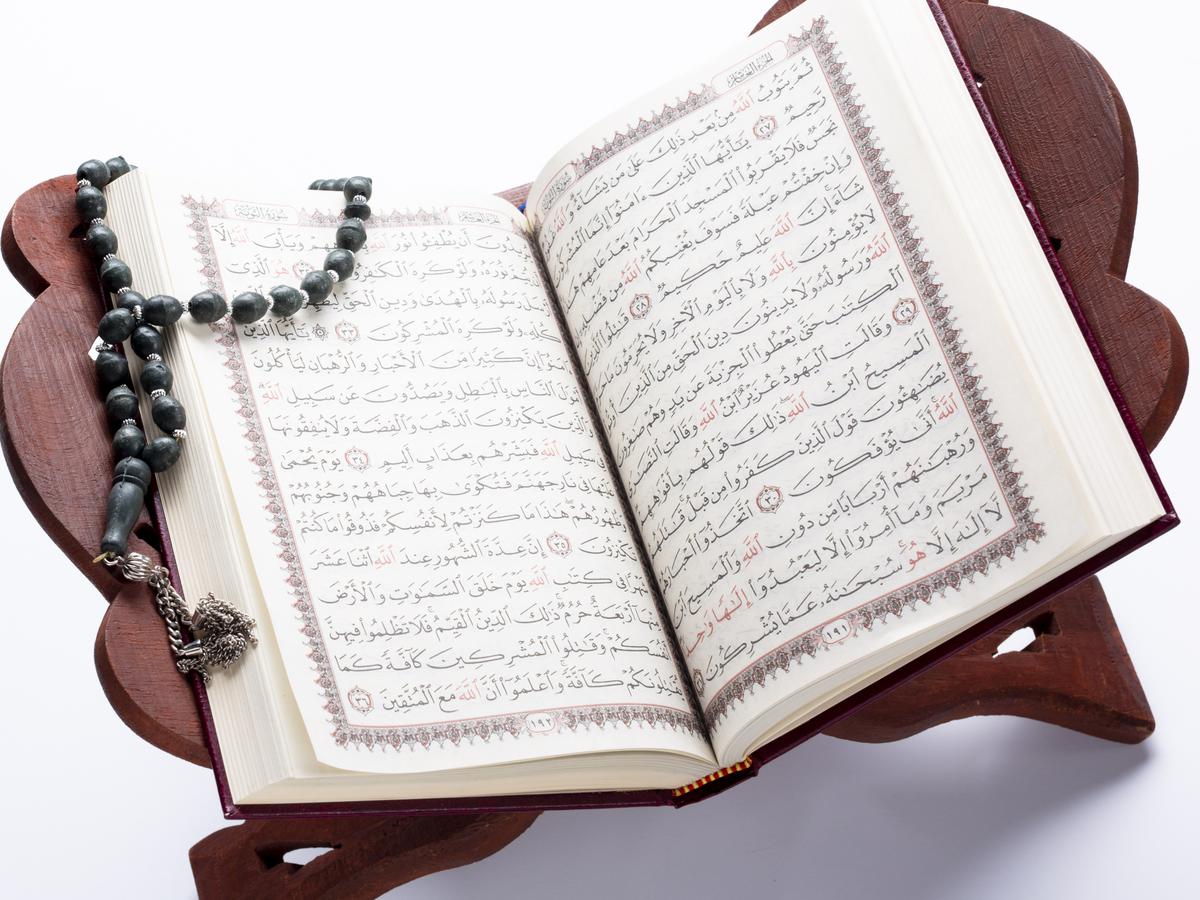 الجزء العاشر سورة التوبة
ثُمَّ يَتُوبُ ٱللَّهُ مِنۢ بَعْدِ ذَٰلِكَ عَلَىٰ مَن يَشَآءُ وَٱللَّهُ
رَّحِيمٌ ٢٧ يَٰٓأَيُّهَا ٱلَّذِينَ ءَامَنُوٓا۟ إِنَّمَا ٱلْمُشْرِكُونَ
نَجَسٌ فَلَا يَقْرَبُوا۟ ٱلْمَسْجِدَ ٱلْحَرَامَ بَعْدَ عَامِهِمْ
وَإِنْ خِفْتُمْ عَيْلَةً فَسَوْفَ يُغْنِيكُمُ ٱللَّهُ مِن فَضْلِهِۦٓ
شَآءَ إِنَّ ٱللَّهَ عَلِيمٌ حَكِيمٌ ٢٨ قَٰتِلُوا۟ ٱلَّذِينَ
لَا يُؤْمِنُونَ بِٱللَّهِ وَلَا بِٱلْيَوْمِ ٱلْءَاخِرِ وَلَا يُحَرِّمُونَ مَا
ٱللَّهُ وَرَسُولُهُۥ وَلَا يَدِينُونَ دِينَ ٱلْحَقِّ مِنَ ٱلَّذِينَ
ٱلْكِتَٰبَ حَتَّىٰ يُعْطُوا۟ ٱلْجِزْيَةَ عَن يَدٍ وَهُمْ صَٰغِرُونَ
٢٩ وَقَالَتِ ٱلْيَهُودُ عُزَيْرٌ ٱبْنُ ٱللَّهِ وَقَالَتِ ٱلنَّصَٰرَى
ٱلْمَسِيحُ ٱبْنُ ٱللَّهِ ذَٰلِكَ قَوْلُهُم بِأَفْوَٰهِهِمْ
يُضَٰهِـُٔونَ قَوْلَ ٱلَّذِينَ كَفَرُوا۟ مِن قَبْلُ قَٰتَلَهُمُ
ٱللَّهُ أَنَّىٰ يُؤْفَكُونَ ٣٠ ٱتَّخَذُوٓا۟ أَحْبَارَهُمْ
وَرُهْبَٰنَهُمْ أَرْبَابًا مِّن دُونِ ٱللَّهِ وَٱلْمَسِيحَ ٱبْنَ
مَرْيَمَ وَمَآ أُمِرُوٓا۟ إِلَّا لِيَعْبُدُوٓا۟ إِلَٰهًا وَٰحِدًا
لَّآ إِلَٰهَ إِلَّا هُوَ سُبْحَٰنَهُۥ عَمَّا يُشْرِكُونَ
١٩١
الجزء العاشر سورة التوبة
يُرِيدُونَ أَن يُطْفِـُٔوا۟ نُورَ ٱللَّهِ وَيَأْبَى ٱللَّهُ إِلَّآ
نُورَهُۥ وَلَوْ كَرِهَ ٱلْكَٰفِرُونَ هُوَ ٱلَّذِىٓ
رَسُولَهُۥ بِٱلْهُدَىٰ وَدِينِ ٱلْحَقِّ
كُلِّهِۦ وَلَوْ كَرِهَ ٱلْمُشْرِكُونَ ٣٣ يَٰٓأَيُّهَا ٱلَّذِينَ
إِنَّ كَثِيرًا مِّنَ ٱلْأَحْبَارِ وَٱلرُّهْبَانِ لَيَأْكُلُونَ
أَمْوَٰلَ ٱلنَّاسِ بِٱلْبَٰطِلِ وَيَصُدُّونَ عَن سَبِيلِ ٱللَّهِ
وَٱلَّذِينَ يَكْنِزُونَ ٱلذَّهَبَ وَٱلْفِضَّةَ وَلَا يُنفِقُونَهَا
سَبِيلِ ٱللَّهِ فَبَشِّرْهُم بِعَذَابٍ أَلِيمٍ ٣٤ يَوْمَ يُحْمَىٰ
عَلَيْهَا فِى نَارِ جَهَنَّمَ فَتُكْوَىٰ بِهَا جِبَاهُهُمْ وَجُنُوبُهُمْ
وَظُهُورُهُمْ هَٰذَا مَا كَنَزْتُمْ لِأَنفُسِكُمْ فَذُوقُوا۟ مَا كُنتُمْ
تَكْنِزُونَ ٣٥ إِنَّ عِدَّةَ ٱلشُّهُورِ عِندَ ٱللَّهِ ٱثْنَا عَشَرَ
شَهْرًا فِى كِتَٰبِ ٱللَّهِ يَوْمَ خَلَقَ ٱلسَّمَٰوَٰتِ وَٱلْأَرْضَ
مِنْهَآ أَرْبَعَةٌ حُرُمٌ ذَٰلِكَ ٱلدِّينُ ٱلْقَيِّمُ فَلَا تَظْلِمُوا۟ فِيهِنَّ
أَنفُسَكُمْ وَقَٰتِلُوا۟ ٱلْمُشْرِكِينَ كَآفَّةً كَمَا
يُقَٰتِلُونَكُمْ كَآفَّةً وَٱعْلَمُوٓا۟ أَنَّ ٱللَّهَ مَعَ ٱلْمُتَّقِينَ ٣٦
١٩٢